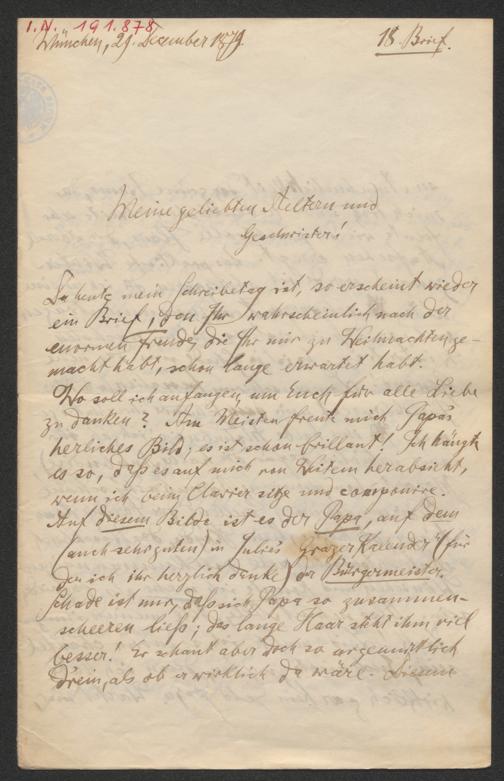 I.N. 191.878
München, 29. Dezember 1879.
18. Brief.
Meine geliebten Aeltern und
Geschwister!
Da heute mein Schreibetag ist, so erscheint wieder
ein Brief, den Ihr wahrscheinlich nach der
enormen Freude, die Ihr mir zu Weihnachten ge-
macht habt, schon lange erwartet habt.
Wo soll ich anfangen, um Euch für alle Liebe
zu danken? Am Meisten freut mich Papa's
herliches Bild; es ist schon brillant! Ich hängte
es so, daß es auf mich von Weitem herabsieht,
wenn ich beim Clavier sitze und componire.
Auf diesem Bilde ist es der Papa, auf dem
(auch sehr guten) in Julius Grazer Kalender (für
den ich ihr herzlich danke) der Bürgermeister.
Schade ist nur, daß sich Papa so zusammen-
scheeren ließ; das lange Haar steht ihm viel
besser! Er schaut aber doch so urgemütlich
drein, als ob er wirklich da wäre. Diesem